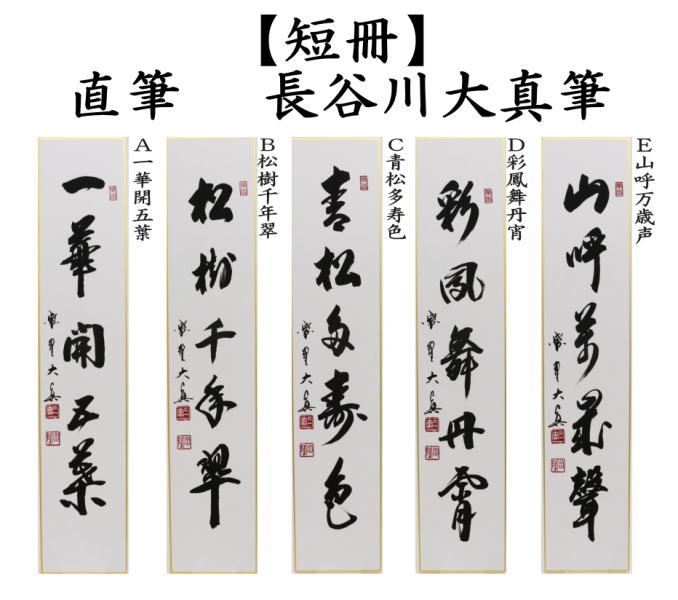 【短冊】
直筆 長谷川大真筆
A一華開五葉
一華開五葉
B松樹千年翠
松樹千年翠
C青松多寿色
青松多寿色
D彩鳳舞丹宵
彩鳳舞丹霄
E山呼万歳声
山呼萬歳聲